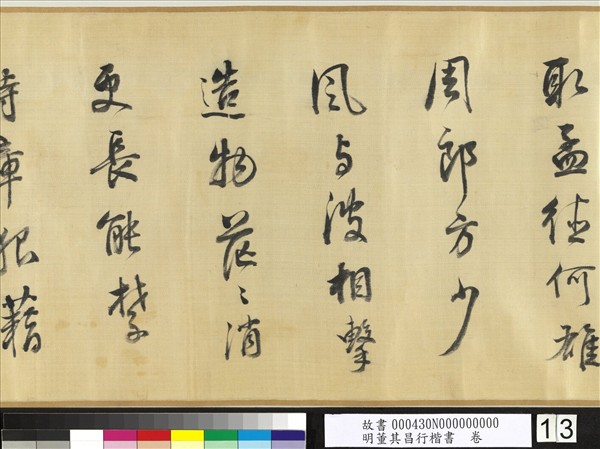 取孟德何雄
周郎方少
風与波相擊
造物茫〻消
更長能
藉
故書 000430N000000000
明董其昌行楷書 卷
13